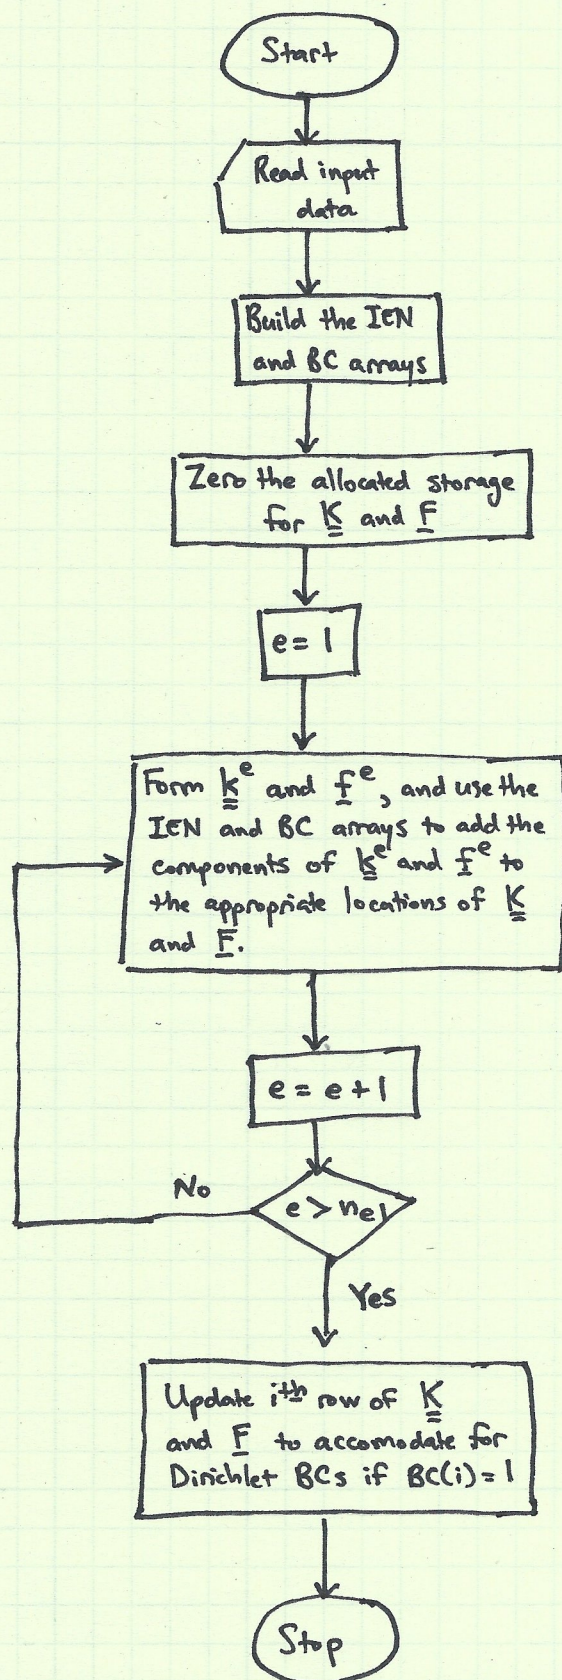 Start
Read input
data
Build the IEN
and BC arrays
Zero the allocated storage
for K and F
e = 1
Form k^e and f^e, and use the
IEN and BC arrays to add the
components of k^e and f^e to
the appropriate locations of K
and F.
e = e+1
e > nel
No
Yes
Update ith row of K
and F to accomodate for
Dirichlet BCs if BC(i) = 1
Stop